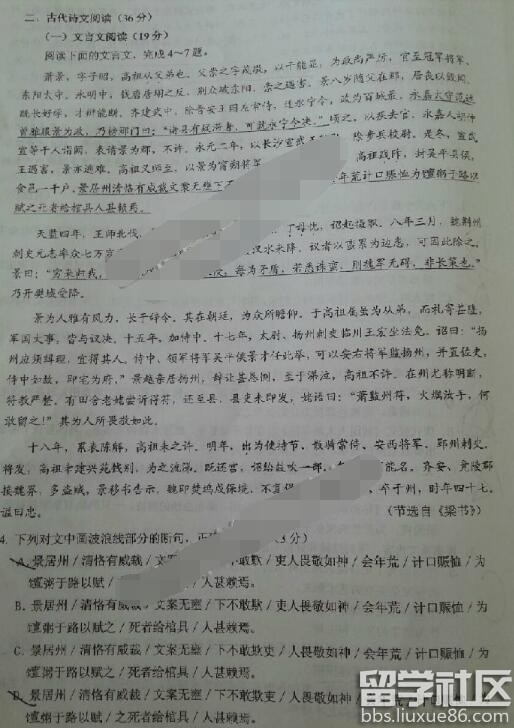 二、古代诗文阅读（36分）
（一）文言文阅读（19分）
阅读下面的文言文，完成4～7题。
萧景，字子昭，高祖从父弟也。父崇之字茂敬，以干能显，为政尚严厉，官至冠军将军、
东阳太守。永明中，钱唐唐㝢之反，别众破东阳，崇之遇害。景八岁随父在郡，居丧以毁闻。
既长好学，才辩能断。齐建武中，除晋安王国左常侍，迁永宁令，政为百城最。永嘉太守范述
曾雅服景为政，乃榜郡门曰：“诸县有疑滞者，可就永宁令决。”顷之，以疾去官，永嘉人胡仲
宣等千人诣阙，表请景为郡，不许。永元二年，以长沙宣武王
除步兵校尉。是冬，宣武
王遇害，景亦逃难。高祖义师至，以景为宁朔将军
高祖践阼，封吴平县侯，
食邑一千户。景居州清恪有威裁文案无壅下不
年荒计口赈恤为饘粥于路以
赋之死者给棺具人甚赖焉。
天监四年，王师北伐，
丁母忧，诏起摄职。八年三月，魏荆州
刺史元志率众七万寇
汉水来降。议者以蛮累为边患，可因此除之。
景曰：“穷来归我，
每为矛盾，若悉诛蛮，则魏军无碍，非长策也。”
乃开樊城受降。
景为人雅有风力，长于辞令。其在朝廷，为众所瞻仰。于高祖属虽为从弟，而礼寄甚隆，
军国大事，皆与议决。十五年，加侍中。十七年，太尉、扬州刺史临川王宏坐法免。诏曰：“扬
州应须缉理，宜得其人。侍中、领军将军吴平侯景才任此举，可以安右将军监扬州，并置佐史，
侍中如故，即宅为府。”景越亲居扬州，辞让甚恳恻，至于涕泣，高祖不许。在州尤称明断，
符教严整。有田舍老姥尝诉得符，还至县，县吏未即发，姥语曰：“萧监州符，火爐汝手，何
敢留之！”其为人所畏敬如此。
十八年，累表陈解，高祖未之许。明年，出为使持节、散骑常侍、安西将军、郢州刺史。
将发，高祖幸建兴苑饯别，为之流涕。既还宫，诏给鼓吹一部。
能名。齐安、竟陵郡
接魏界，多盗贼，景移书告示，魏即焚坞戍保境，不复侵
卒于州，时年四十七。
谥曰忠。
（节选自《梁书》）
4. 下列对文中画波浪线部分的断句，正
3分）
A. 景居州/清恪有威裁/文案无壅/下不敢欺/吏人畏敬如神/会年荒/计口赈恤/为
饘粥于路以赋/
人甚赖焉。
B. 景居州/清恪有威裁/文案无壅/下不敢欺/吏人畏敬如神/会年荒/计口赈恤/为
饘粥于路以赋之/死者给棺具/人甚赖焉。
C. 景居州/清恪有威裁/文案无壅/下不敢欺吏人/畏敬如神/会年荒/计口赈恤/为
饘粥于路以赋之/死者给棺具/人甚赖焉。
D. 景居州/清恪有威裁/文案无壅/下不敢欺吏人/畏敬如神/
饘粥于路以赋/之死者给棺具/人甚赖焉。
留学社区
bbs.liuxue86.com